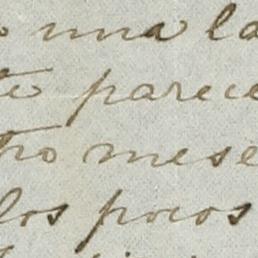 una la
te parece
tro mese
los pocos